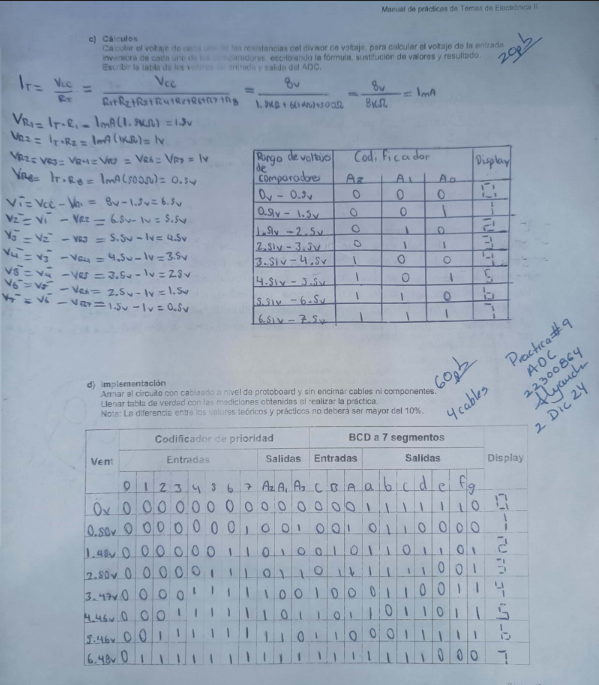 Manual de prácticas de Temas de Electrónica II
c) Cálculos
Calcular el voltaje de cada una de las resistencias del divisor de voltaje, para calcular el voltaje de la entrada
inversora de cada uno de los comparadores, escribiendo la fórmula, sustitución de valores y resultado.
Escribir la tabla de los valores de entrada y salida del ADC.
IT = Vcc/RT = Vcc/R1+R2+R3+R4+R5+R6+R7+R8 = 8v/1.5KΩ+6(1KΩ)+500Ω = 8v/8KΩ = 1mA
VR1 = IT·R1 = 1mA(1.5KΩ) = 1.5v
VR2 = IT·R2 = 1mA(1KΩ) = 1v
VR2 = VR3 = VR4 = VR5 = VR6 = VR7 = 1v
VR8 = IT·R8 = 1mA(500Ω) = 0.5v
V1⁻ = Vcc - VR1 = 8v - 1.5v = 6.5v
V2⁻ = V1⁻ - VR2 = 6.5v - 1v = 5.5v
V3⁻ = V2⁻ - VR3 = 5.5v - 1v = 4.5v
V4⁻ = V3⁻ - VR4 = 4.5v - 1v = 3.5v
V5⁻ = V4⁻ - VR5 = 3.5v - 1v = 2.5v
V6⁻ = V5⁻ - VR6 = 2.5v - 1v = 1.5v
V7⁻ = V6⁻ - VR7 = 1.5v - 1v = 0.5v
Rango de voltajo de comparadores Codificador Display
A2 A1 A0
0v - 0.5v 0 0 0 0
0.51v - 1.5v 0 0 1 1
1.51v - 2.5v 0 1 0 2
2.51v - 3.5v 0 1 1 3
3.51v - 4.5v 1 0 0 4
4.51v - 5.5v 1 0 1 5
5.51v - 6.5v 1 1 0 6
6.51v - 7.5v 1 1 1 7
d) Implementación
Armar el circuito con cableado a nivel de protoboard y sin encimar cables ni componentes.
Llenar tabla de verdad con las mediciones obtenidas al realizar la práctica.
Nota: La diferencia entre los valores teóricos y prácticos no deberá ser mayor del 10%.
4 cables
Practica #9
ADC
22300864
2 Dic 24
Codificador de prioridad BCD a 7 segmentos
Vent Entradas Salidas Entradas Salidas Display
0 1 2 3 4 5 6 7 A2 A1 A0 C B A a b c d e f g
0v 0 0 0 0 0 0 0 0 0 0 0 0 0 0 1 1 1 1 1 1 0 0
0.50v 0 0 0 0 0 0 0 1 0 0 1 0 0 1 0 1 1 0 0 0 0 1
1.48v 0 0 0 0 0 0 1 1 0 1 0 0 1 0 1 1 0 1 1 0 1 2
2.50v 0 0 0 0 0 1 1 1 0 1 1 0 1 1 1 1 1 1 0 0 1 3
3.47v 0 0 0 0 1 1 1 1 1 0 0 1 0 0 0 1 1 0 0 1 1 4
4.46v 0 0 0 1 1 1 1 1 1 0 1 1 0 1 1 0 1 1 0 1 1 5
5.46v 0 0 1 1 1 1 1 1 1 1 0 1 1 0 0 0 1 1 1 1 1 6
6.48v 0 1 1 1 1 1 1 1 1 1 1 1 1 1 1 1 1 0 0 0 0 7